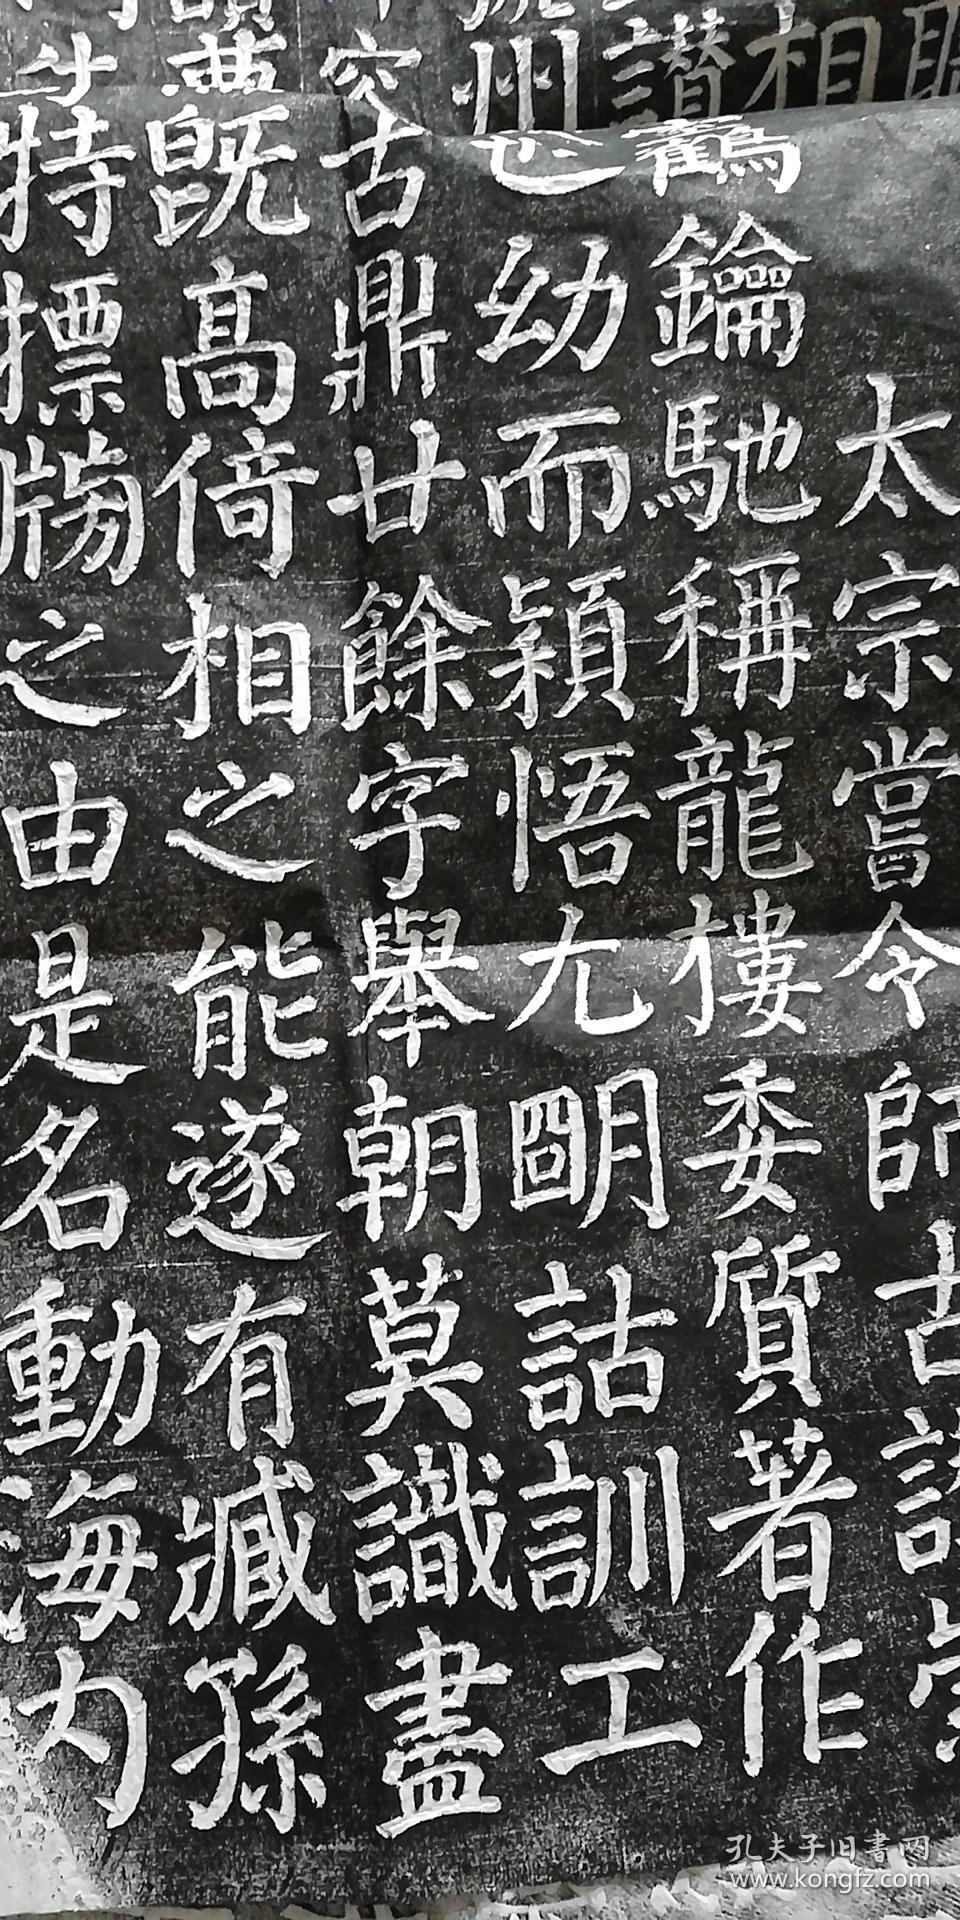 太宗嘗令師古
鶴鑰馳稱龍樓委質著作
也幼而穎悟尤明詁訓工
古鼎廿餘字舉朝莫識盡
既高倚相之能遂有臧孫
特標牓之由是名動海內
相
讃
州
容
孔夫子旧書网
www.kongfz.com